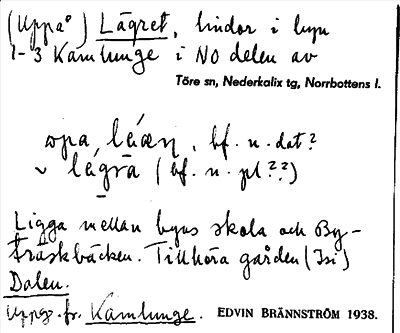 (Uppå) Lägret, lindor i byn
1-3 Kamlunge i NO delen av
Töre sn, Nederkalix tg, Norrbottens l.
opa, , bf. n. dat?
(bf. n. pl??)
Ligga mellan byns skola och By-
träskbäcken. Tillhöra gården (Isi)
Dalen.
Uppg. fr. Kamlunge. EDVIN BRÄNNSTRÖM 1938.